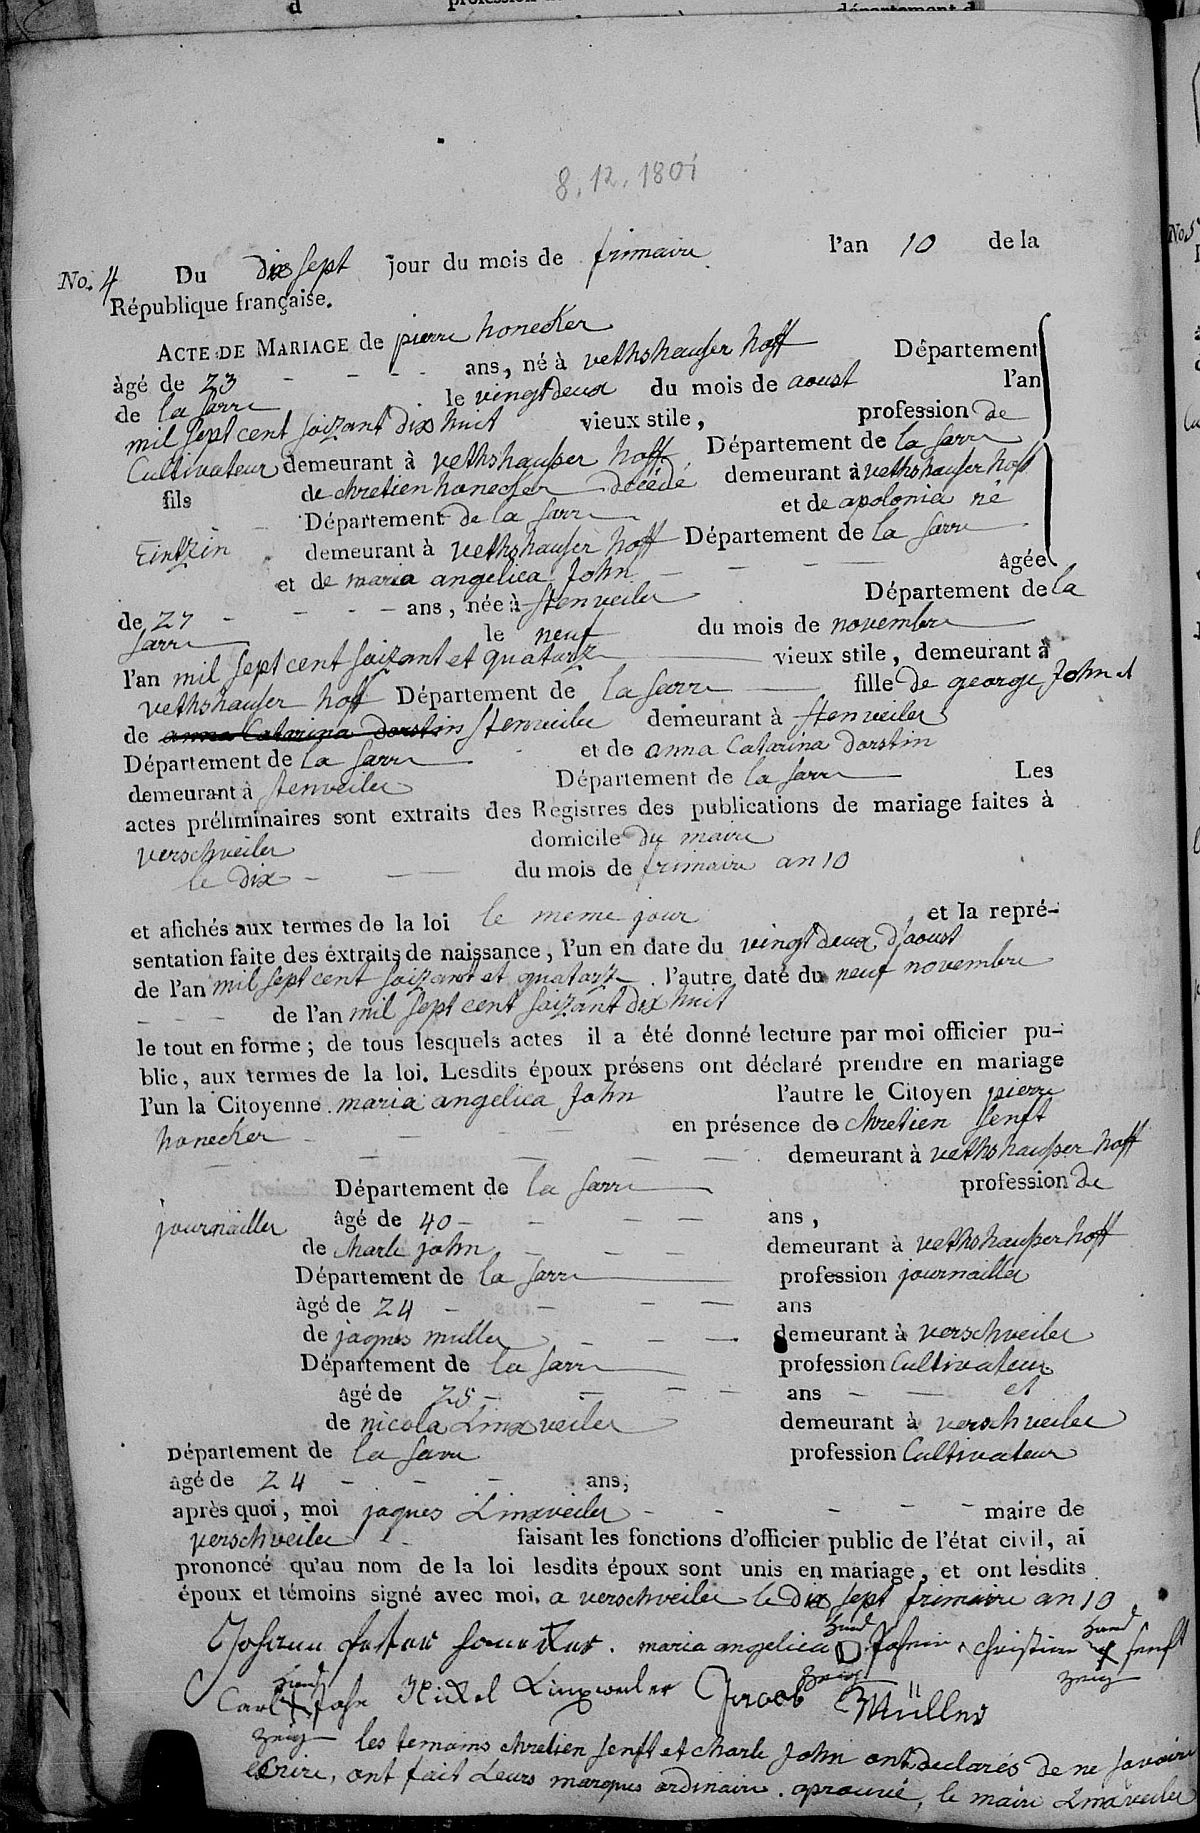 8.12.1801
No. 4 Du dix sept jour du mois de frimaire l'an 10 de la
République française.
ACTE DE MARIAGE de pierre honecker
âgé de 23 - - - - ans, né à vethshauser hoff Département
de la sarre le vingtdeux du mois de aoust l'an
mil sept cent soizant dix huit vieux stile, profession de
Cultivateur demeurant à vethshausser hoff Département de la sarre
fils de chretien honecker décédé demeurant à vethshauser hoff
Département de la sarre et de apolonia né
Eintzin demeurant à vethshauser hoff Département de la sarre
et de maria angelica John - - - - âgée
de 27 - - - - ans, née à stenveiler Département de la
sarre le neuf du mois de novembre
l'an mil sept cent soizant et quatarz vieux stile, demeurant à
vethshauser hoff Département de la sarre fille de george John et
de anna Catarina dorstin stenveiler demeurant à stenveiler
Département de la sarre et de anna Catarina dorstin
demeurant à stenveiler Département de la sarre Les
actes préliminaires sont extraits des Registres des publications de mariage faites à
verschveiler domicile du maire
le dix - - du mois de frimaire an 10
et afichés aux termes de la loi le meme jour et la repré-
sentation faite des extraits de naissance, l'un en date du vingt deux d'aoust
de l'an mil sept cent soizant et quatarz . l'autre daté du neuf novembre
- - - de l'an mil sept cent soizant dix huit
le tout en forme; de tous lesquels actes il a été donné lecture par moi officier pu-
blic, aux termes de la loi. Lesdits époux présens ont déclaré prendre en mariage
l'un la Citoyenne maria angelica John l'autre le Citoyen pierre
honecker - - - - en présence de chretien senft
- - - - demeurant à vethshausser hoff
Département de la sarre profession de
journailler âgé de 40 - - - - ans,
de charle john - - - demeurant à vethshausser hoff
Département de la sarre profession journailler
âgé de 24 - - - - ans
de jaques muller - - - demeurant à verschveiler
Département de la sarre profession Cultivateur
âgé de 25 - - - - ans - - et
de nicola Linxveiler demeurant à verschveiler
Département de la sarre profession Cultivateur
âgé de 24 - - - ans,
après quoi, moi jaques Linxveiler - - - - - maire de
verschveiler faisant les fonctions d'officier public de l'état civil, ai
prononcé qu'au nom de la loi lesdits époux sont unis en mariage, et ont lesdits
époux et témoins signé avec moi. a verschveiler le dix sept frimaire an 10
Johann peter honecker. maria angelica hand zeug Johnin christian hand zeug senft
Carl hand zeug John Nickel Linxweiler Jacob Müller
les temoins chretien senft et charle John ont declarés de ne savoire
ecrire, ont fait Leurs marques ordinaire. aprouvé, le maire Linxveiler